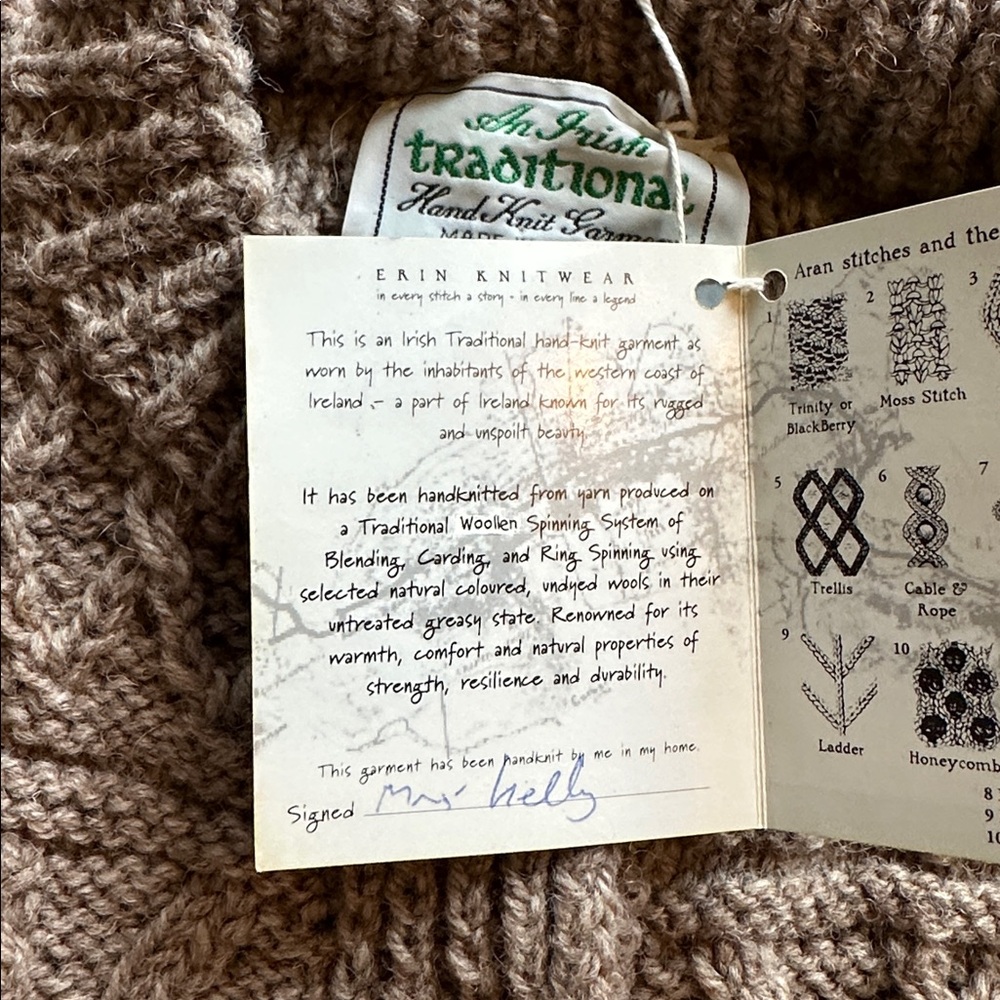 An Irish
traditional
Hand Knit Garment
ERIN KNITWEAR
in every stitch a story - in every line a legend
This is an Irish Traditional hand-knit garment as
worn by the inhabitants of the western coast of
Ireland - a part of Ireland known for its rugged
and unspoilt beauty.
It has been handknitted from yarn produced on
a Traditional Woollen Spinning System of
Blending, Carding, and Ring Spinning using
selected natural coloured, undyed wools in their
untreated greasy state. Renowned for its
warmth, comfort and natural properties of
strength, resilience and durability.
This garment has been handknit by me in my home.
Signed Kelly
Aran stitches and the
1
2
3
Trinity or
BlackBerry
Moss Stitch
5
6
7
Trellis
Cable &
Rope
9
10
Ladder
Honeycomb
8
9
10